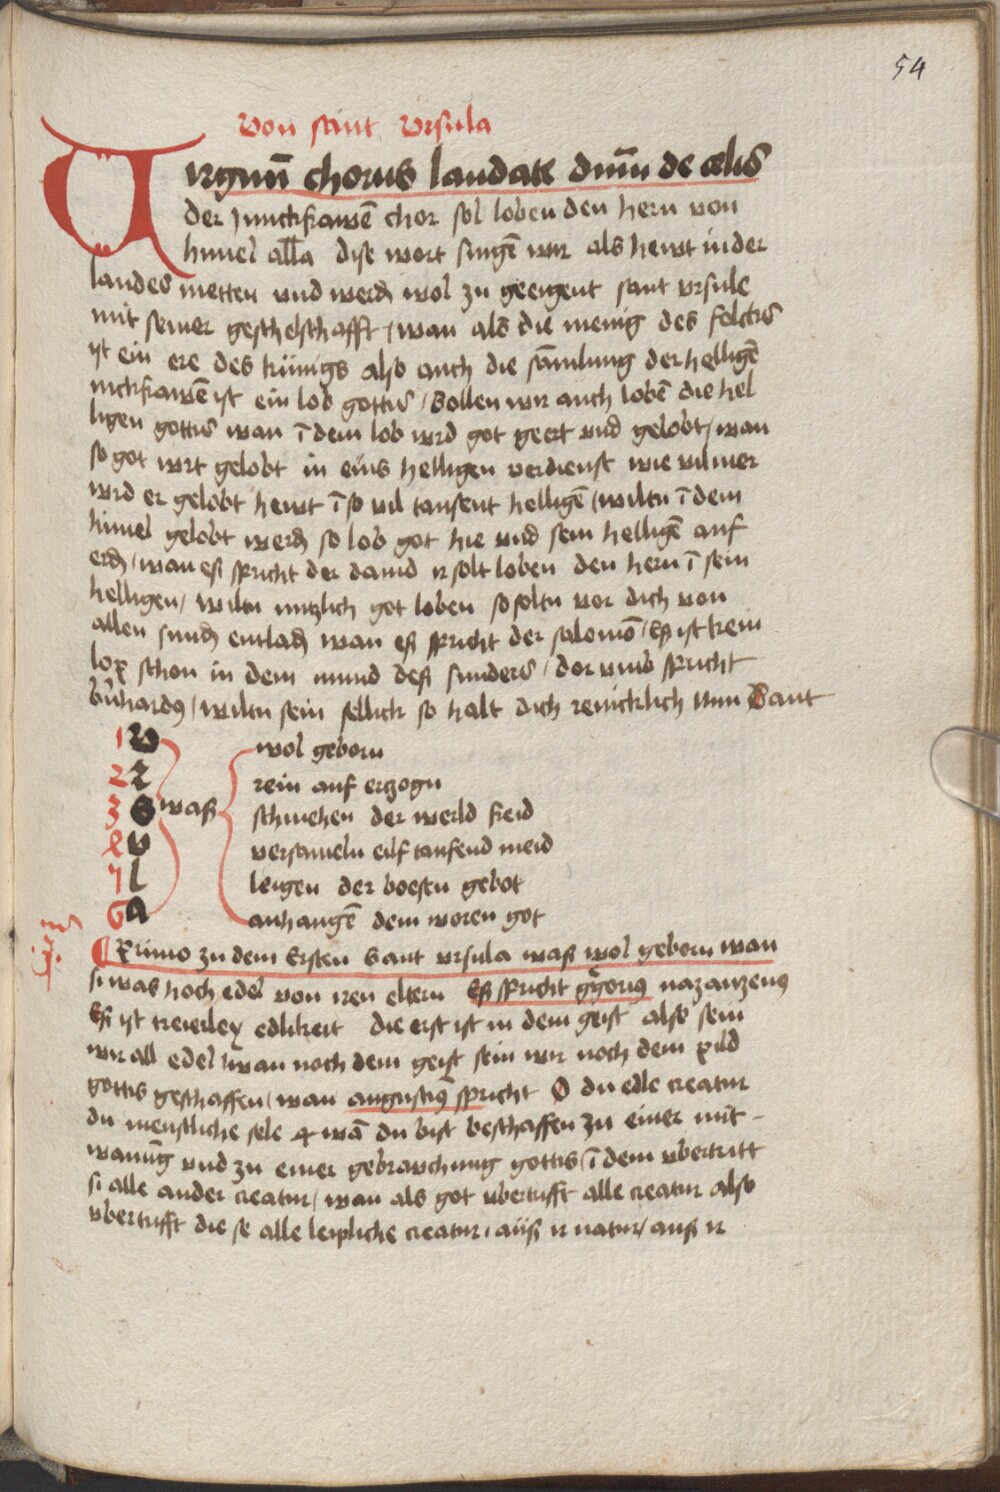 54
von sant vrsula
Virginū chorus laudate dnm̄ de celis
der Junckfrawē chor sol loben den hern von
himel all̄a dise wort singē wir als hewt in der
landes metten vnd werdn wol zu geeigent sant vrsule
mit seiner geschelschafft / wan als die menig des folckis
ist ein ere des künigs also auch die sāmlung der helligē
nickfrawē ist ein lob gottis / Sollen wir auch lobē die hel
ligen gottis wan ī dem lob wird got geert vnd gelobt / wan
so got wirt gelobt in eins helligen verdienst wie vil mer
wird er gelobt hewt ī so vil tausent helligē / wiltu ī dem
himel gelobt werdn so lob got hie vnd sein helligē auf
erdn / wan eß spricht der dauid ir solt loben den hern ī sein
helligen / wiltu nutzlich got loben so soltu vor dich von
allen sundn entladn wan eß spricht der salomō / Eß ist kein
lop schon in dem mund deß sunders / dor vmb spricht
bn̄hardus / wiltu sein sellich so halt dich reinicklich Nun Sant
1 V wol geborn
2 r rein auf erzogn
3 S waß schmehen der werld freid
4 v versameln eilf tausend meid
5 l leigen der boestn gebot
6 A anhangē dem woren got
Primo zu dem Ersten Sant vrsula waß wol geborn wan
si was hoch edel von iren eltern Eß spricht gg̅orius nazanzenus
Eß ist treierley edlikeit die erst ist in dem geist also sein
wir all edel / wan noch dem geist sein wir noch dem pild
gottis geschaffen / wan augustiūs spricht O du edle creatur
du menstliche sele wā du bist beschaffen zu einer mit-
wanūg vnd zu einer gebrauchung gottis / ī dem vbertritt
si alle ander creatur / wan als got vbertrifft alle creatur also
vbertrifft die se alle leipliche creatur / auß ir natur / auß ir